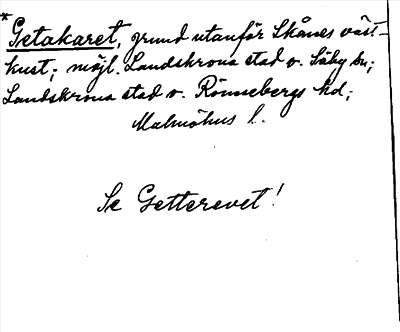 *Getakaret, grund utanför Skånes väst-
kust; möjl. Landskrona stad o. Säby sn;
Landskrona stad o. Rönnebergs hd;
Malmöhus l.
Se Getterevet!